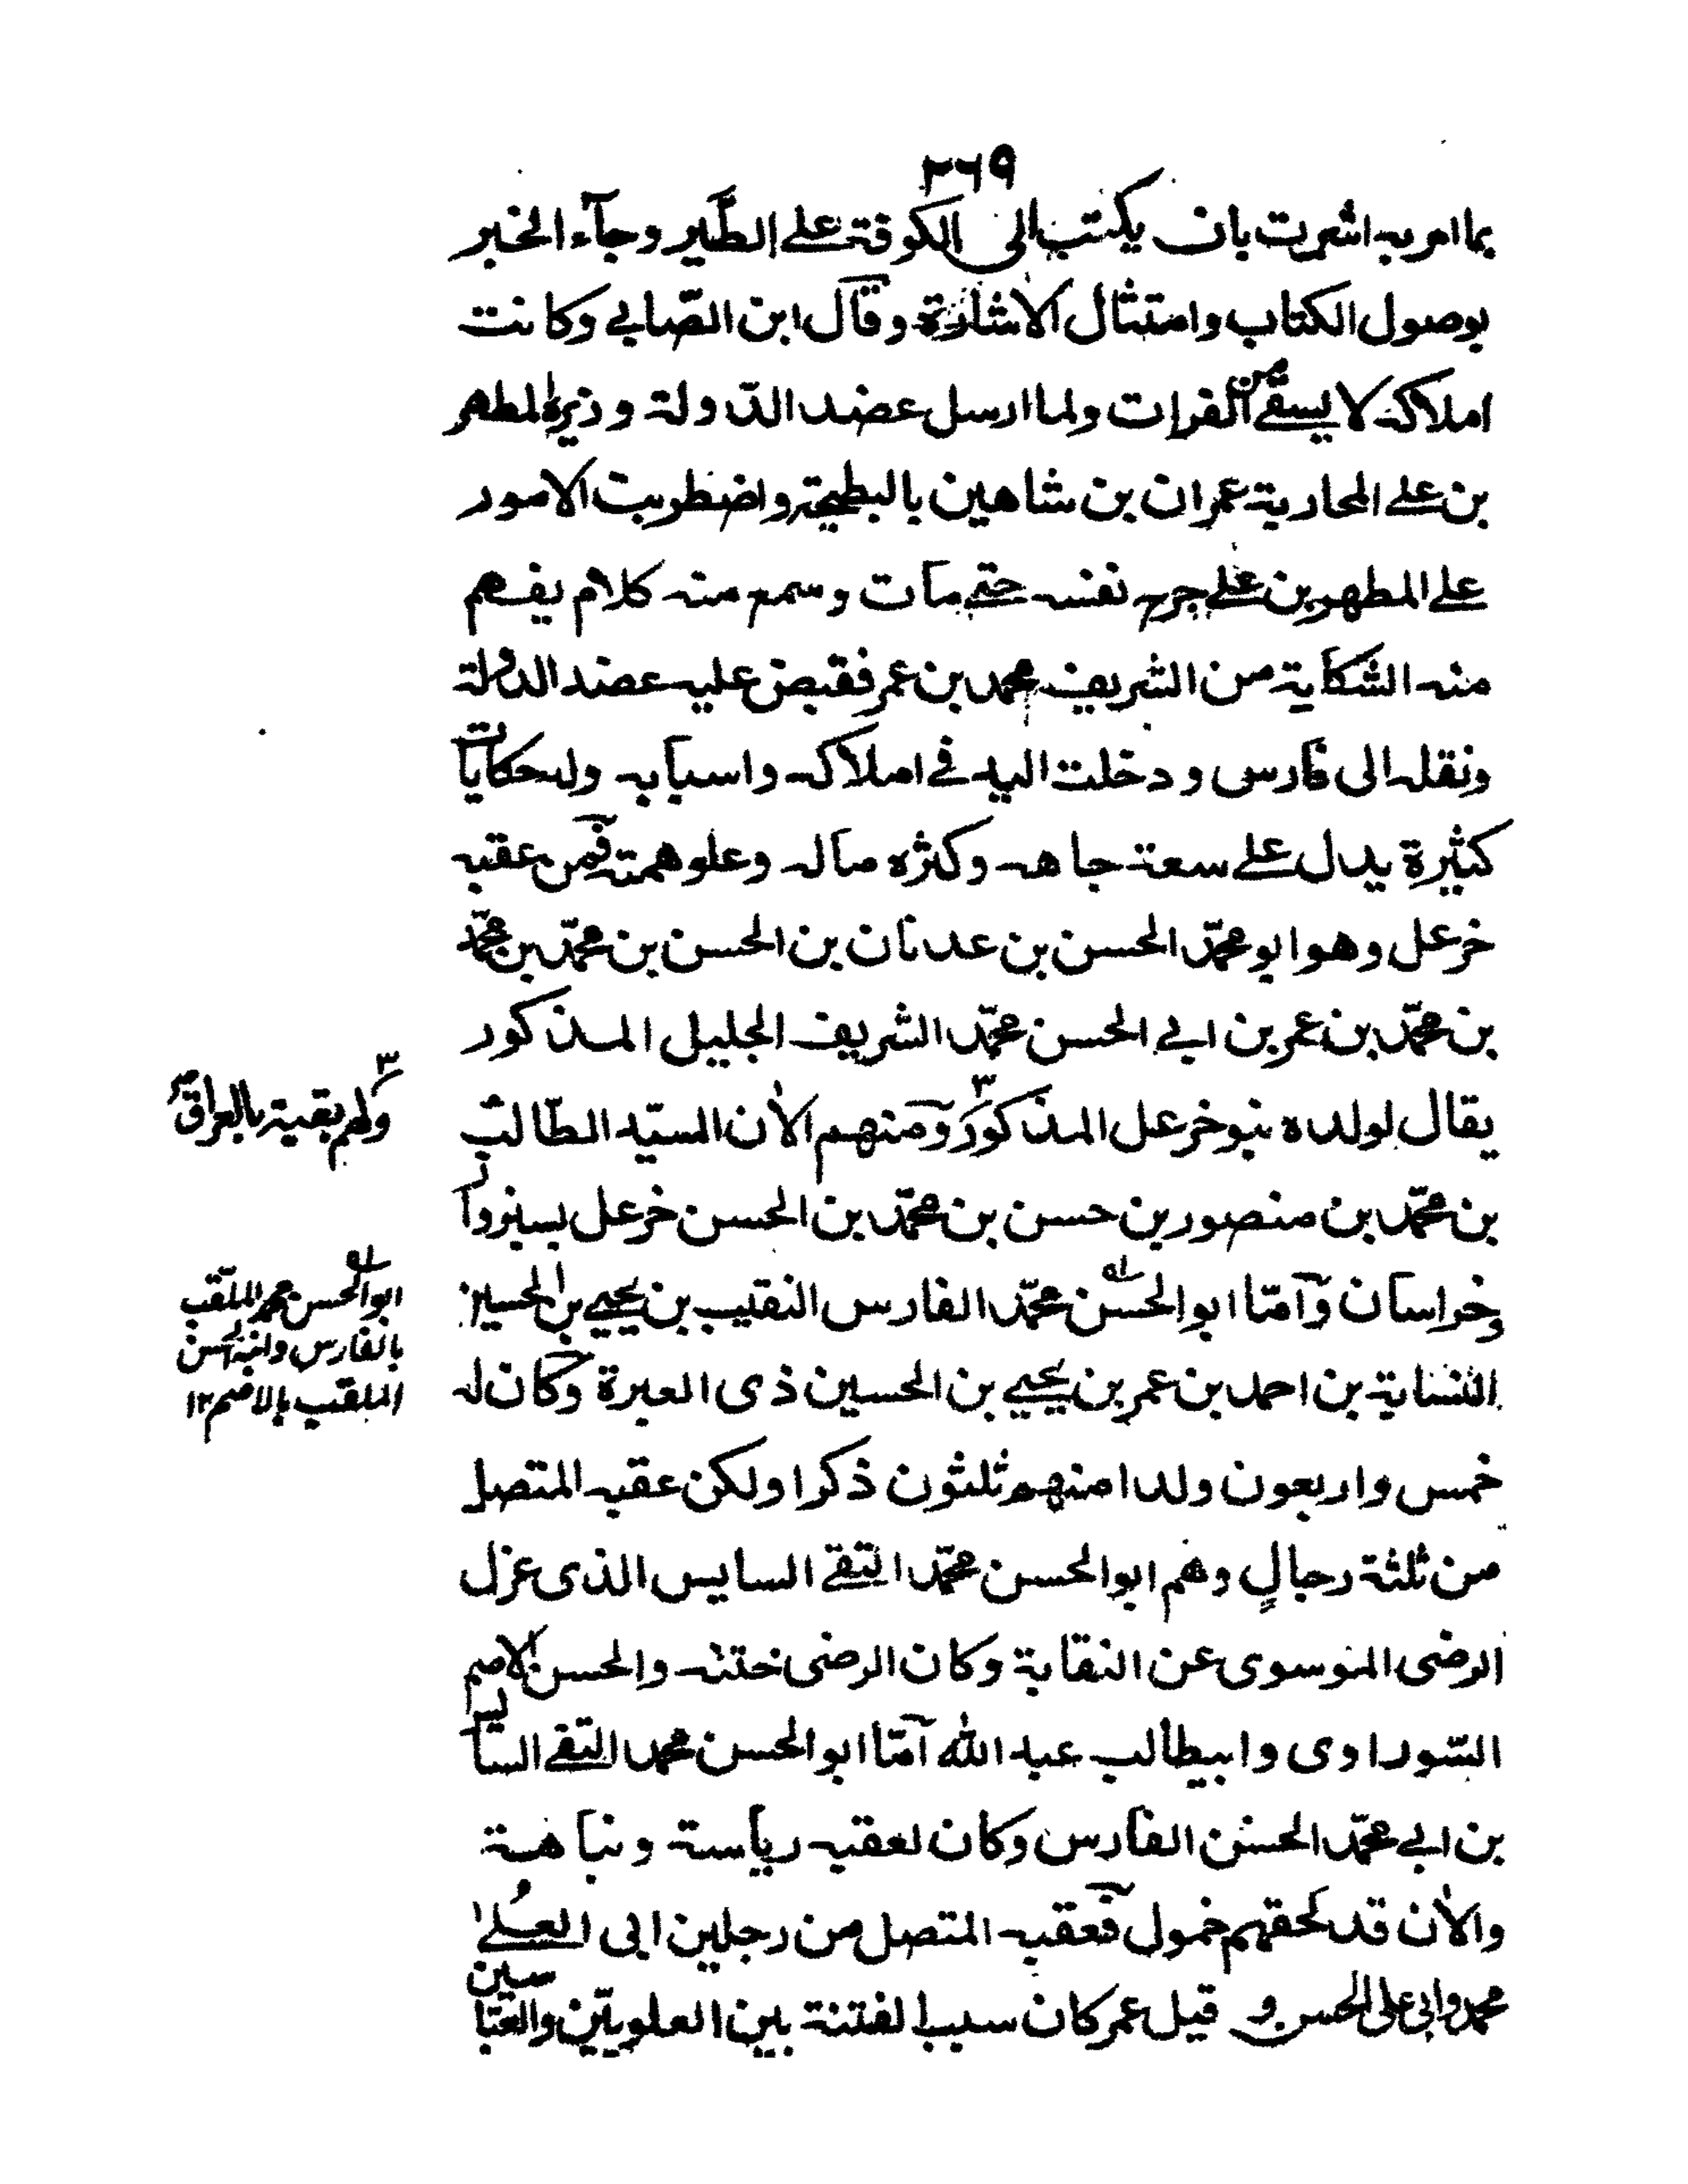 ٢٦٩
بما امر به اشرت بان يكتب الى الكوفة على الطّير وجآء الخبر
بوصول الكتاب وامتثال الاشارة وقال ابن الصّابى وكانت
املاكه لا يسقى من الفرات ولما ارسل عضد الدّولة وزيره المطهر
بن على المحاربة عمران بن شاهين بالبطيحة واضطربت الامور
على المطهر بن على جرح نفسه حتى مات وسمع منه كلام يفهم
منه الشكاية من الشريف محمد بن عمر فقبض عليه عضد الدولة
ونقله الى فارس ودخلت اليد فى املاكه واسبابه وله حكايات
كثيرة يدل على سعة جاهه وكثره ماله وعلو همته فمن عقبه
خزعل وهو ابو محمّد الحسن بن عدنان بن الحسن بن محمّد بن محمّد
بن محمّد بن عمر بن ابى الحسن محمّد الشريف الجليل المذكور
يقال لولده بنو خزعل المذكور ٣ ومنهم الأن السيّد الطّالب
بن محمّد بن منصور بن حسن بن محمّد بن الحسن خزعل بسبزوار
وخراسان وآمّا ابو الحسن محمّد الفارس النقيب بن يحيى بن الحسين
النسابة بن احمد بن عمر بن يحيى بن الحسين ذى العبرة وكان له
خمس واربعون ولدا منهم ثلثون ذكرا ولكن عقبه المتصل
من ثلثة رجالٍ وهم ابو الحسن محمّد التقى السايس الذى عزل
الرضى الموسوى عن النقابة وكان الرضى ختنه والحسن الاصم
السّوراوى وابيطالب عبد الله آمّا ابو الحسن محمد التقى السايس
بن ابى محمّد الحسن الفارس وكان لعقبه رياسة ونباهة
والأن قد لحقهم خمول فعقبه المتصل من رجلين ابى العُلى
محمد وابى على الحسن و قيل عمر كان سبب الفتنة بين العلويّين والعبّاسين
٣
ولهم بقية بالعراق صح
ابو الحسن محمد الملقب
بالفارس وابنه الحسن
الملقب بالاصم ١٢